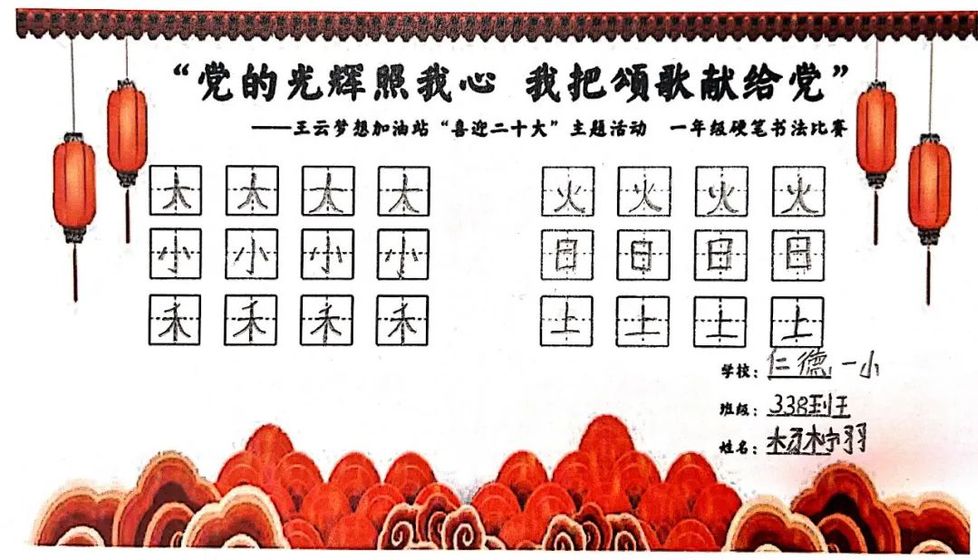 “党的光辉照我心 我把颂歌献给党”
——王云梦想加油站“喜迎二十大”主题活动 一年级硬笔书法比赛
太 太 太 太 火 火 火 火
小 小 小 小 日 日 日 日
禾 禾 禾 禾 上 上 上 上
学校：仁德一小
班级：338班
姓名：杨柠羽